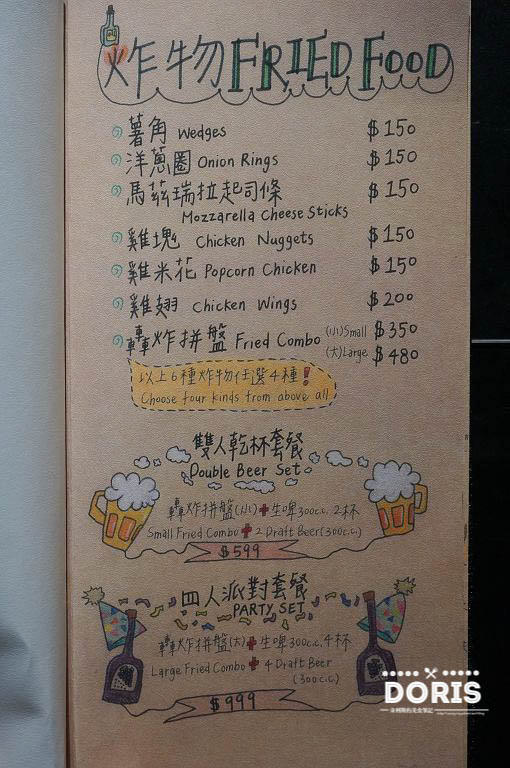 炸物 FRIED FOOD
薯角 Wedges $150
洋蔥圈 Onion Rings $150
馬茲瑞拉起司條 $150
Mozzarella Cheese Sticks
雞塊 Chicken Nuggets $150
雞米花 Popcorn Chicken $150
雞翅 Chicken Wings $200
轟炸拼盤 Fried Combo (小)Small $350
(大)Large $480
以上6種炸物任選4種!
Choose four kinds from above all
雙人乾杯套餐
Double Beer Set
轟炸拼盤(小)+生啤300c.c. 2杯
Small Fried Combo + 2 Draft Beer(300c.c.)
$599
四人派對套餐
PARTY SET
轟炸拼盤(大)+生啤300c.c. 4杯
Large Fried Combo + 4 Draft Beer
(300c.c)
$999
DORIS